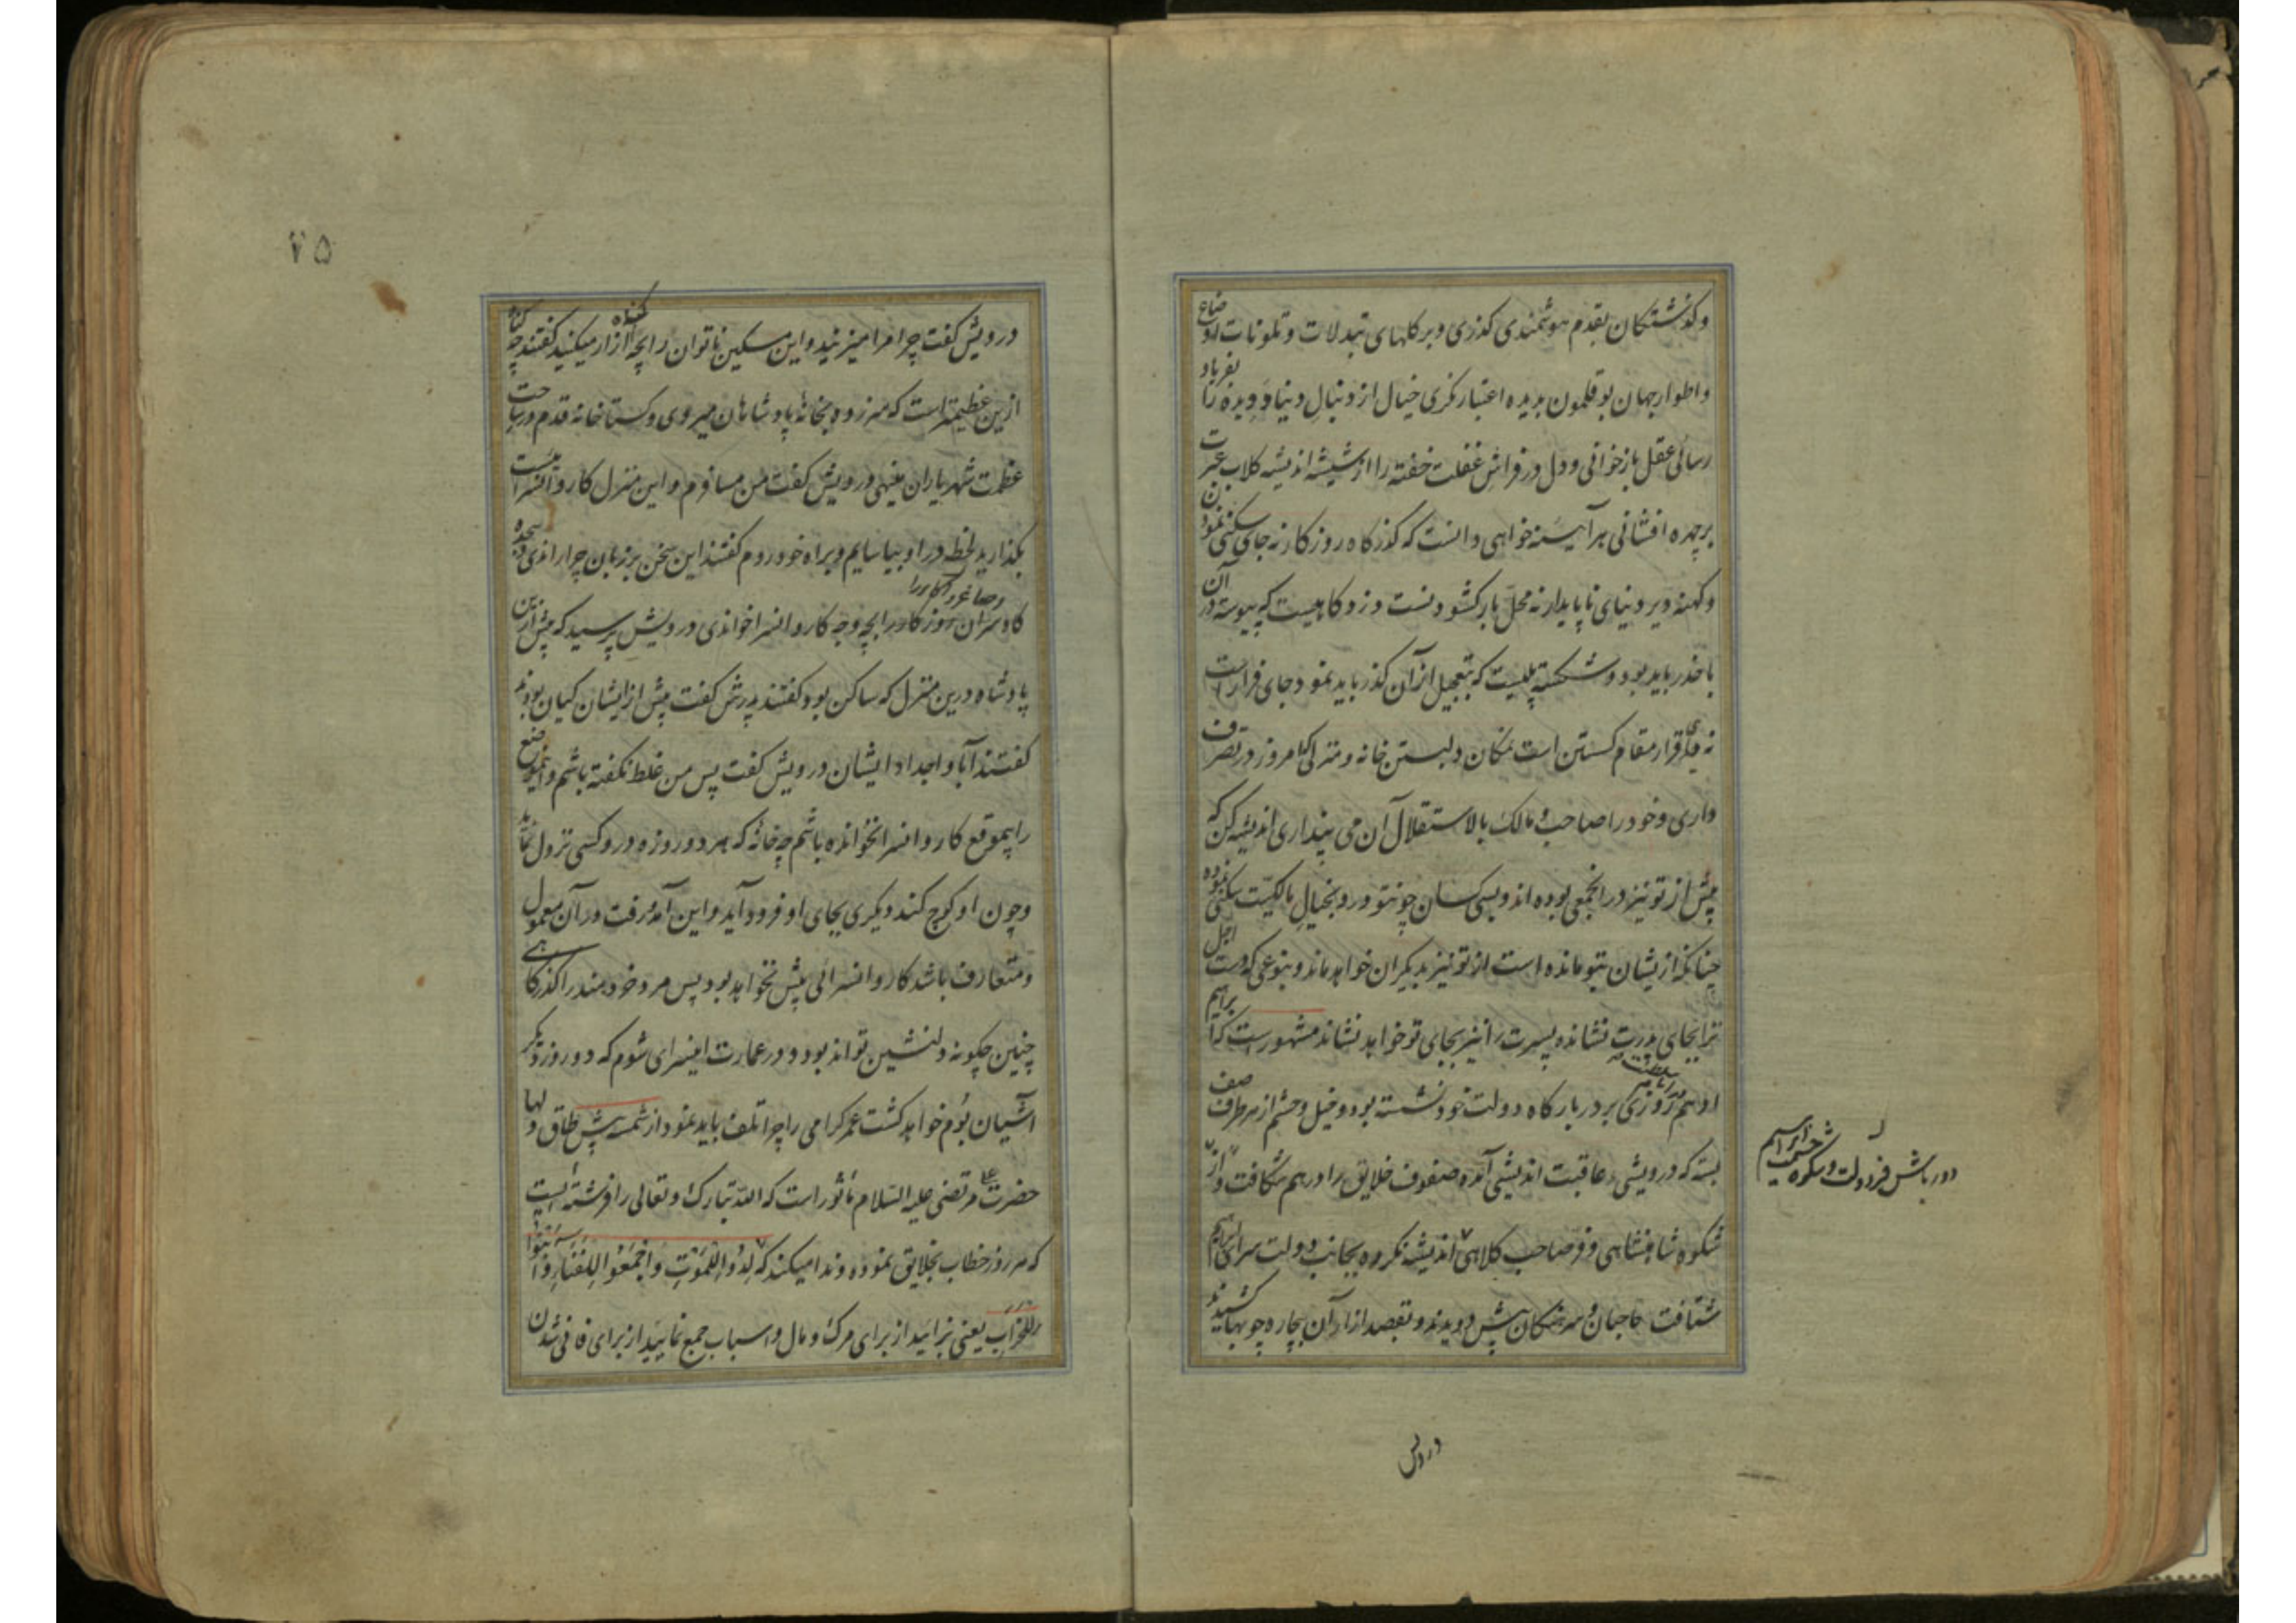 وکذشتکان بقدم هوشمندی کذری وبر کلهای تبدلات وتلونات اوضاع
واطوار جهان بوقلمون بدیده اعتبار نکری خیال از دنبال دنیا دویده را بفریاد
رسائی عقل بازخوانی ودل در فراش غفلت خفته را از شیشه اندیشه کلاب عبرت
برچهره افشانی هر آیینه خواهی دانست که کذرکاه روزکار نه جای سکنی نمودن
وکهنه دیر دنیای ناپایدار نه محل بار کشودنست دزدکاهیست که پیوسته در آن
باحذر باید بود وشکسته پلیست که بتعجیل از آن کذر باید نمود جای فرار است
نه جای قرار مقام کسستن است نه مکان دلبستن خانه ومنزلی که امروز در تصرف
داری وخود را صاحب و مالک بالاستقلال آن می پنداری اندیشه کن که
پیش از تو نیز در انجمعی بوده اند وبسی کسان چون تو درو بخیال مالکیت سکنی نموده
چنانکه ازیشان بتو مانده است از تو نیز بدیکران خواهد ماند وبنوعی که دست اجل
ترا بجای پدرت نشانده پسرت را نیز بجای تو خواهد نشاند مشهور است که ابراهیم
ادهم روزی بر در بارکاه دولت خود نشسته بود وخیل وحشم از هر طرف صف
بسته که درویشی عاقبت اندیشی آمده صفوف خلایق را در هم شکافت واز
شکوه شاهنشاهی وفر صاحب کلاهی اندیشه نکرده بجانب دولت سرای ابراهیم
شتافت حاجبان و سرهنکان پیش دویدند وبقصد ازار آن بیچاره چوبها کشیدند
دور باش فر دولت وشکوه حشمت ابراهیم
درویش
۷۵
درویش کفت چرا مرا میزنید واین مسکین ناتوان را بچه کناه آزار میکنید کفتند چه کناه
ازین عظیمتر است که سرزده بخانهٔ پادشاهان میروی وکستاخانه قدم در ساحت
عظمت شهریاران مینهی درویش کفت من مسافرم واین منزل کاروانسراست
بکذارید لحظه در او بیاسایم وبراه خود روم کفتند این سخن بر زبان چرا راندی وسجده
کاه سران روزکار را بچه وجه کاروانسرا خواندی درویش پرسید که پیش ازین
پادشاه درین منزل که ساکن بود کفتند پدرش کفت پیش از ایشان کیان بودند
کفتند آبا و اجداد ایشان درویش کفت پس من غلط نکفته باشم واینموضع
را بیموقع کاروانسرا نخوانده باشم چه خانهٔ که هر دو روزه درو کسی نزول نماید
وچون او کوچ کند دیکری بجای او فرود آید واین آمد و رفت در آن معمول
ومتعارف باشد کاروانسرائی بیش نخواهد بود پس مرد خردمند را کذرکاهی
چنین چکونه دلنشین تواند بود ودر عمارت اینسرای شوم که دو روز دیکر
آشیان بوم خواهد کشت عمر کرامی را چرا تلف باید نمود از شمسهٔ پیش طاق ولها
حضرت علی مرتضی علیه السلام مأثور است که الله تبارک وتعالی را فرشته ایست
که هر روز خطاب بخلایق نموده وندا میکند که لِدُوا لِلْمَوْتِ وَاجْمَعُوا لِلْفَنَاءِ وَابْنُوا
لِلْخَرَابِ یعنی بزایید از برای مرک و مال واسباب جمع نمایید از برای فانی شدن